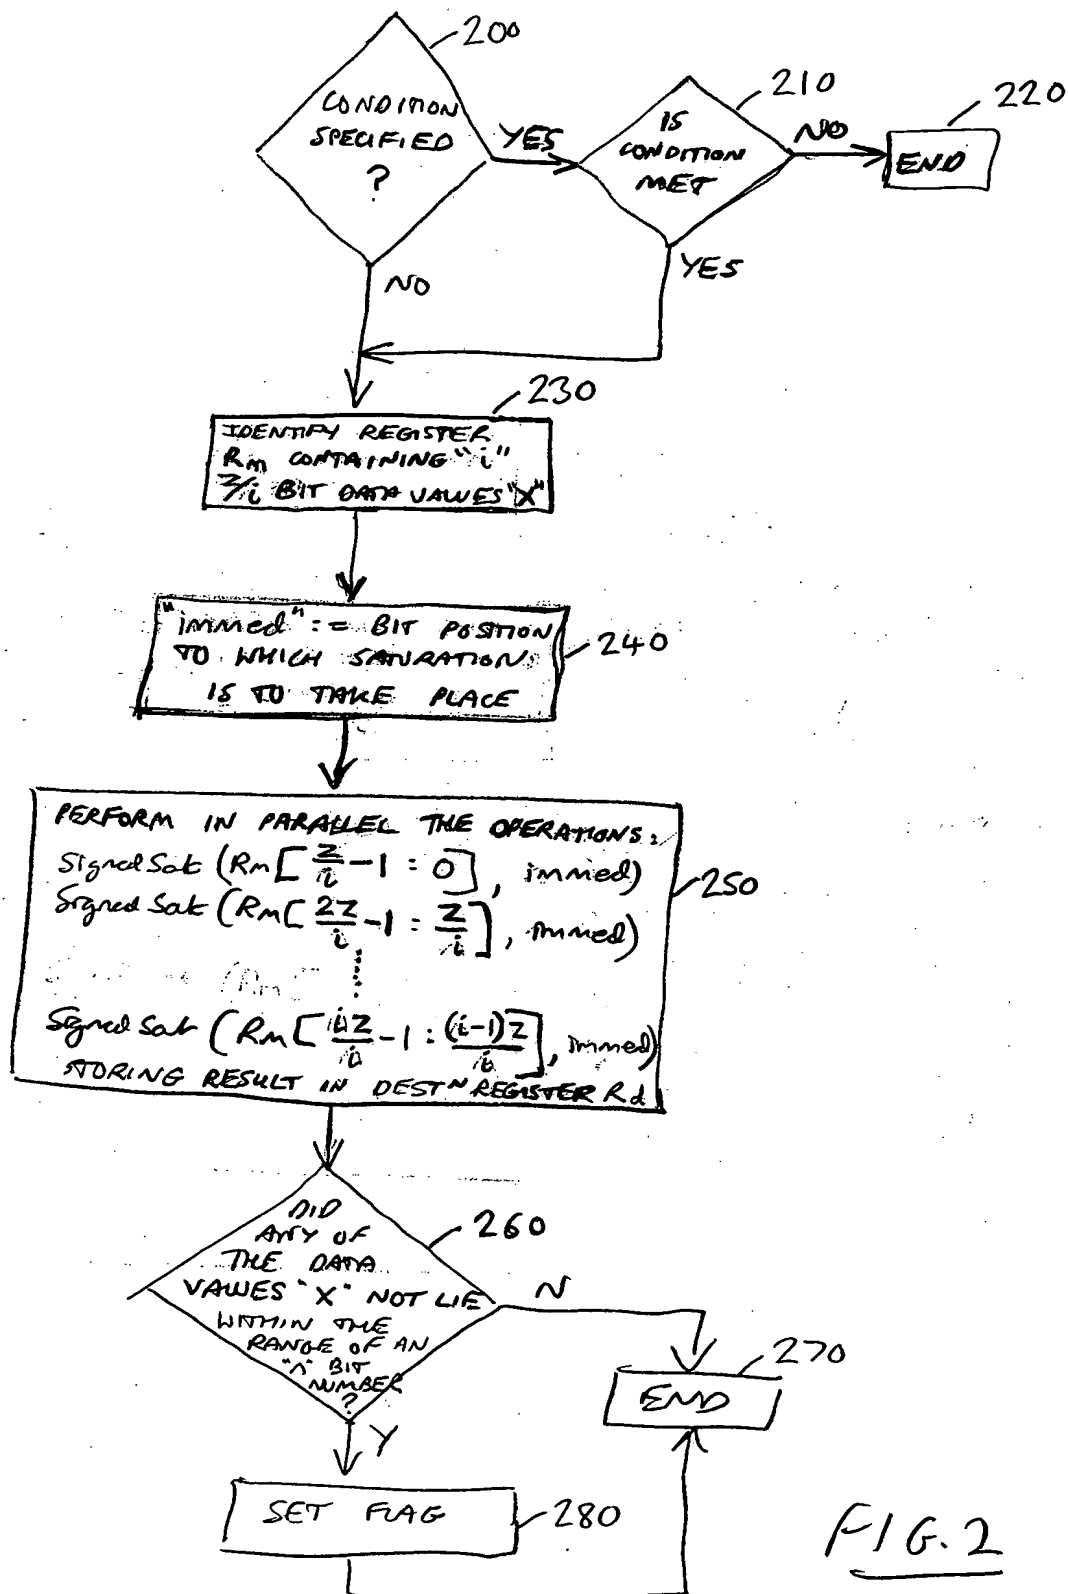 200
CONDITION
SPECIFIED
?
YES
210
IS
CONDITION
MET
NO
220
END
NO
YES
230
IDENTIFY REGISTER
Rm CONTAINING "i"
Z/i BIT DATA VALUES "X"
"immed" := BIT POSITION
TO WHICH SATURATION
IS TO TAKE PLACE
240
PERFORM IN PARALLEL THE OPERATIONS:
Signed Sat (Rm[Z/i - 1 : 0], immed)
Signed Sat (Rm[2Z/i - 1 : Z/i], immed)
250
Signed Sat (Rm[iZ/i - 1 : (i-1)Z/i], immed)
STORING RESULT IN DESTN REGISTER Rd
DID
ANY OF
THE DATA
VALUES "X" NOT LIE
WITHIN THE
RANGE OF AN
"n" BIT
NUMBER
?
260
N
270
END
Y
SET FLAG
280
FIG. 2